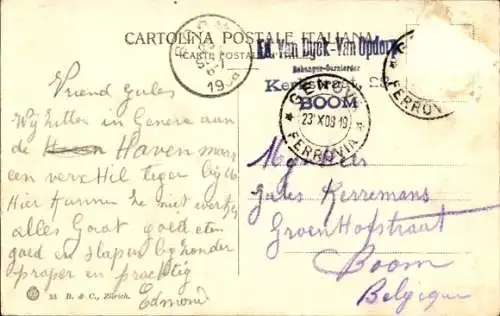 CARTOLINA POSTALE ITALIANA
(CARTE POSTALE
Ed. Van Dyck-Van Opdorp
Behanger-Garnierder
BOOM
GENOVA
23 X 08 19
FERROVIA
FERROVIA
BOOM
1908
Vriend Jules
Wij zitten in Genova aan
de Haven maar
een verschil tegen bij
Hier kunnen ze niet
alles Gaat goed eten
goed en slapen bijzonder
proper en prachtig
Edmond
Mijnheer
Jules Kerremans
Groen Hofstraat
Boom
Belgique
33 B. & C., Zürich.